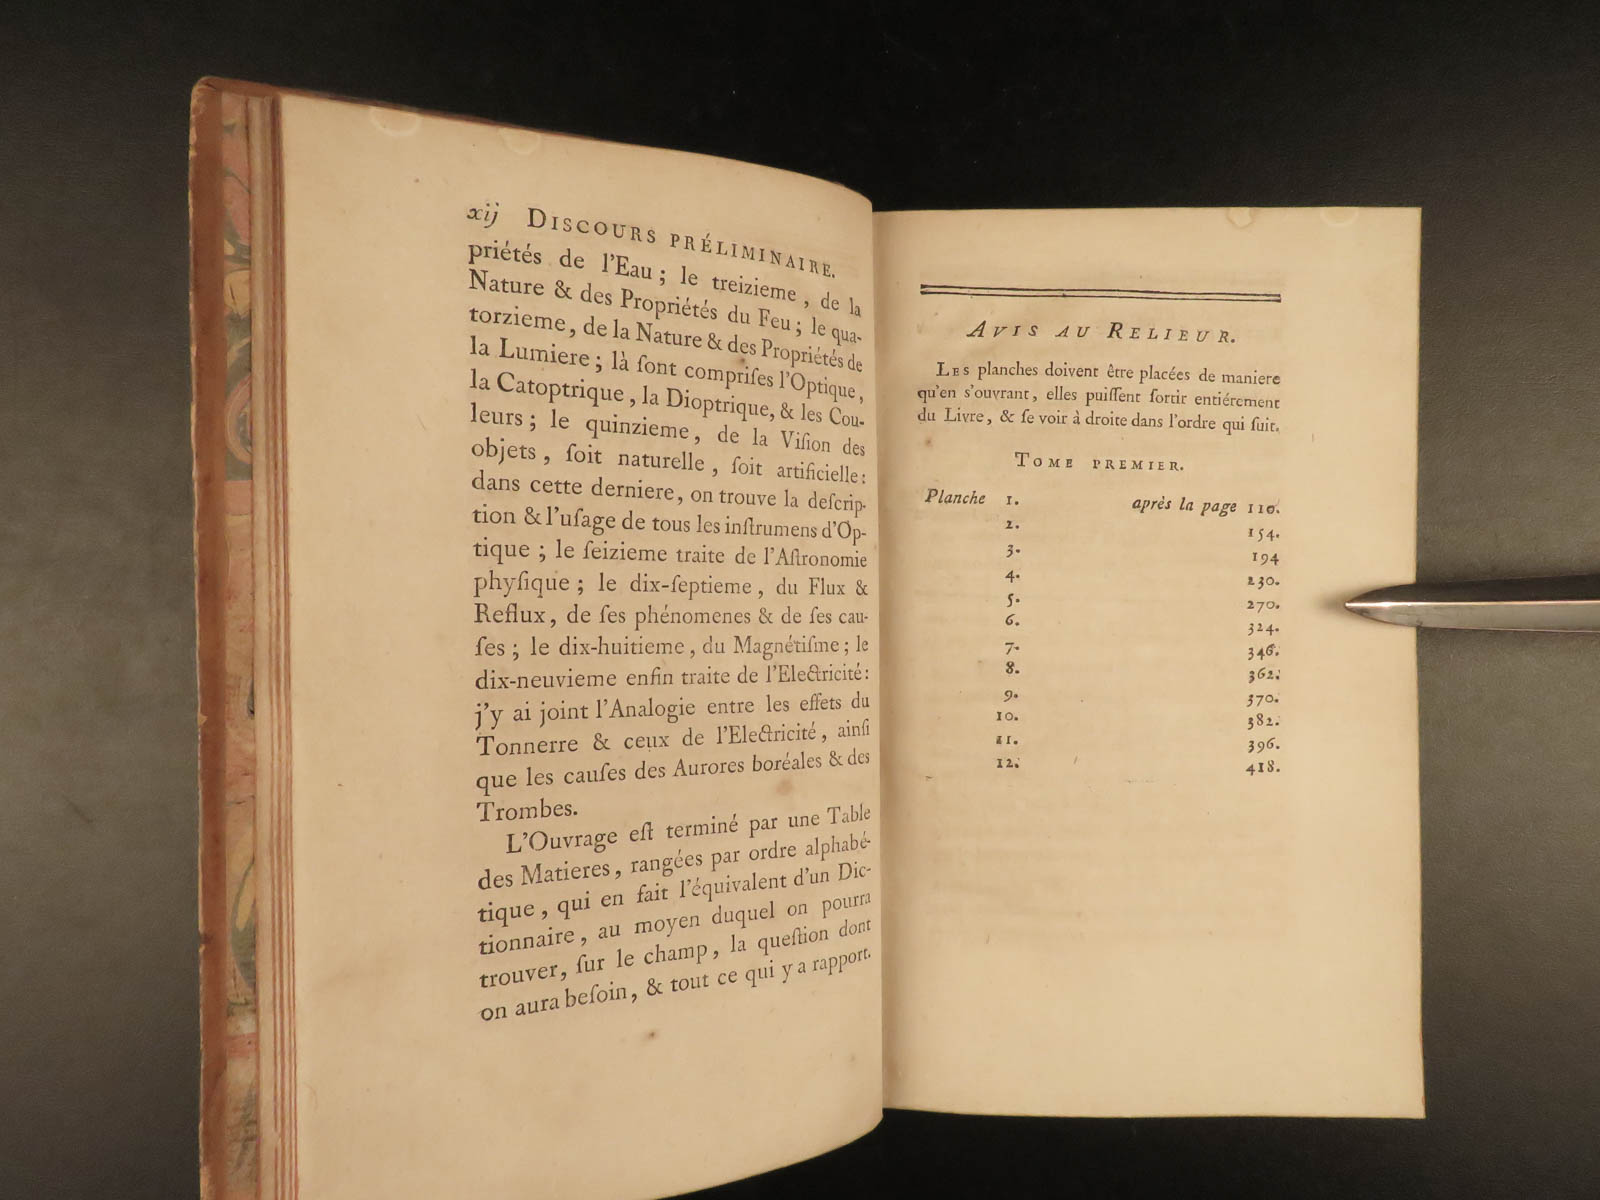 xij DISCOURS PRÉLIMINAIRE.
priétés de l'Eau ; le treizieme , de la
Nature & des Propriétés du Feu ; le qua-
torzieme, de la Nature & des Propriétés de
la Lumiere ; là ſont compriſes l'Optique,
la Catoptrique , la Dioptrique, & les Cou-
leurs ; le quinzieme , de la Viſion des
objets , ſoit naturelle , ſoit artificielle :
dans cette derniere, on trouve la deſcrip-
tion & l'uſage de tous les inſtrumens d'Op-
tique ; le ſeizieme traite de l'Aſtronomie
phyſique ; le dix-ſeptieme , du Flux &
Reflux, de ſes phénomenes & de ſes cau-
ſes ; le dix-huitieme , du Magnétiſme ; le
dix-neuvieme enfin traite de l'Electricité :
j'y ai joint l'Analogie entre les effets du
Tonnerre & ceux de l'Electricité, ainſi
que les cauſes des Aurores boréales & des
Trombes.
L'Ouvrage eſt terminé par une Table
des Matieres, rangées par ordre alphabé-
tique , qui en fait l'équivalent d'un Dic-
tionnaire, au moyen duquel on pourra
trouver, ſur le champ, la queſtion dont
on aura beſoin, & tout ce qui y a rapport.
AVIS AU RELIEUR.
LES planches doivent être placées de maniere
qu'en s'ouvrant, elles puiſſent ſortir entiérement
du Livre, & ſe voir à droite dans l'ordre qui ſuit.
TOME PREMIER.
Planche 1. après la page 110.
2. 154.
3. 194
4. 230.
5. 270.
6. 324.
7. 346.
8. 362.
9. 370.
10. 382.
11. 396.
12. 418.